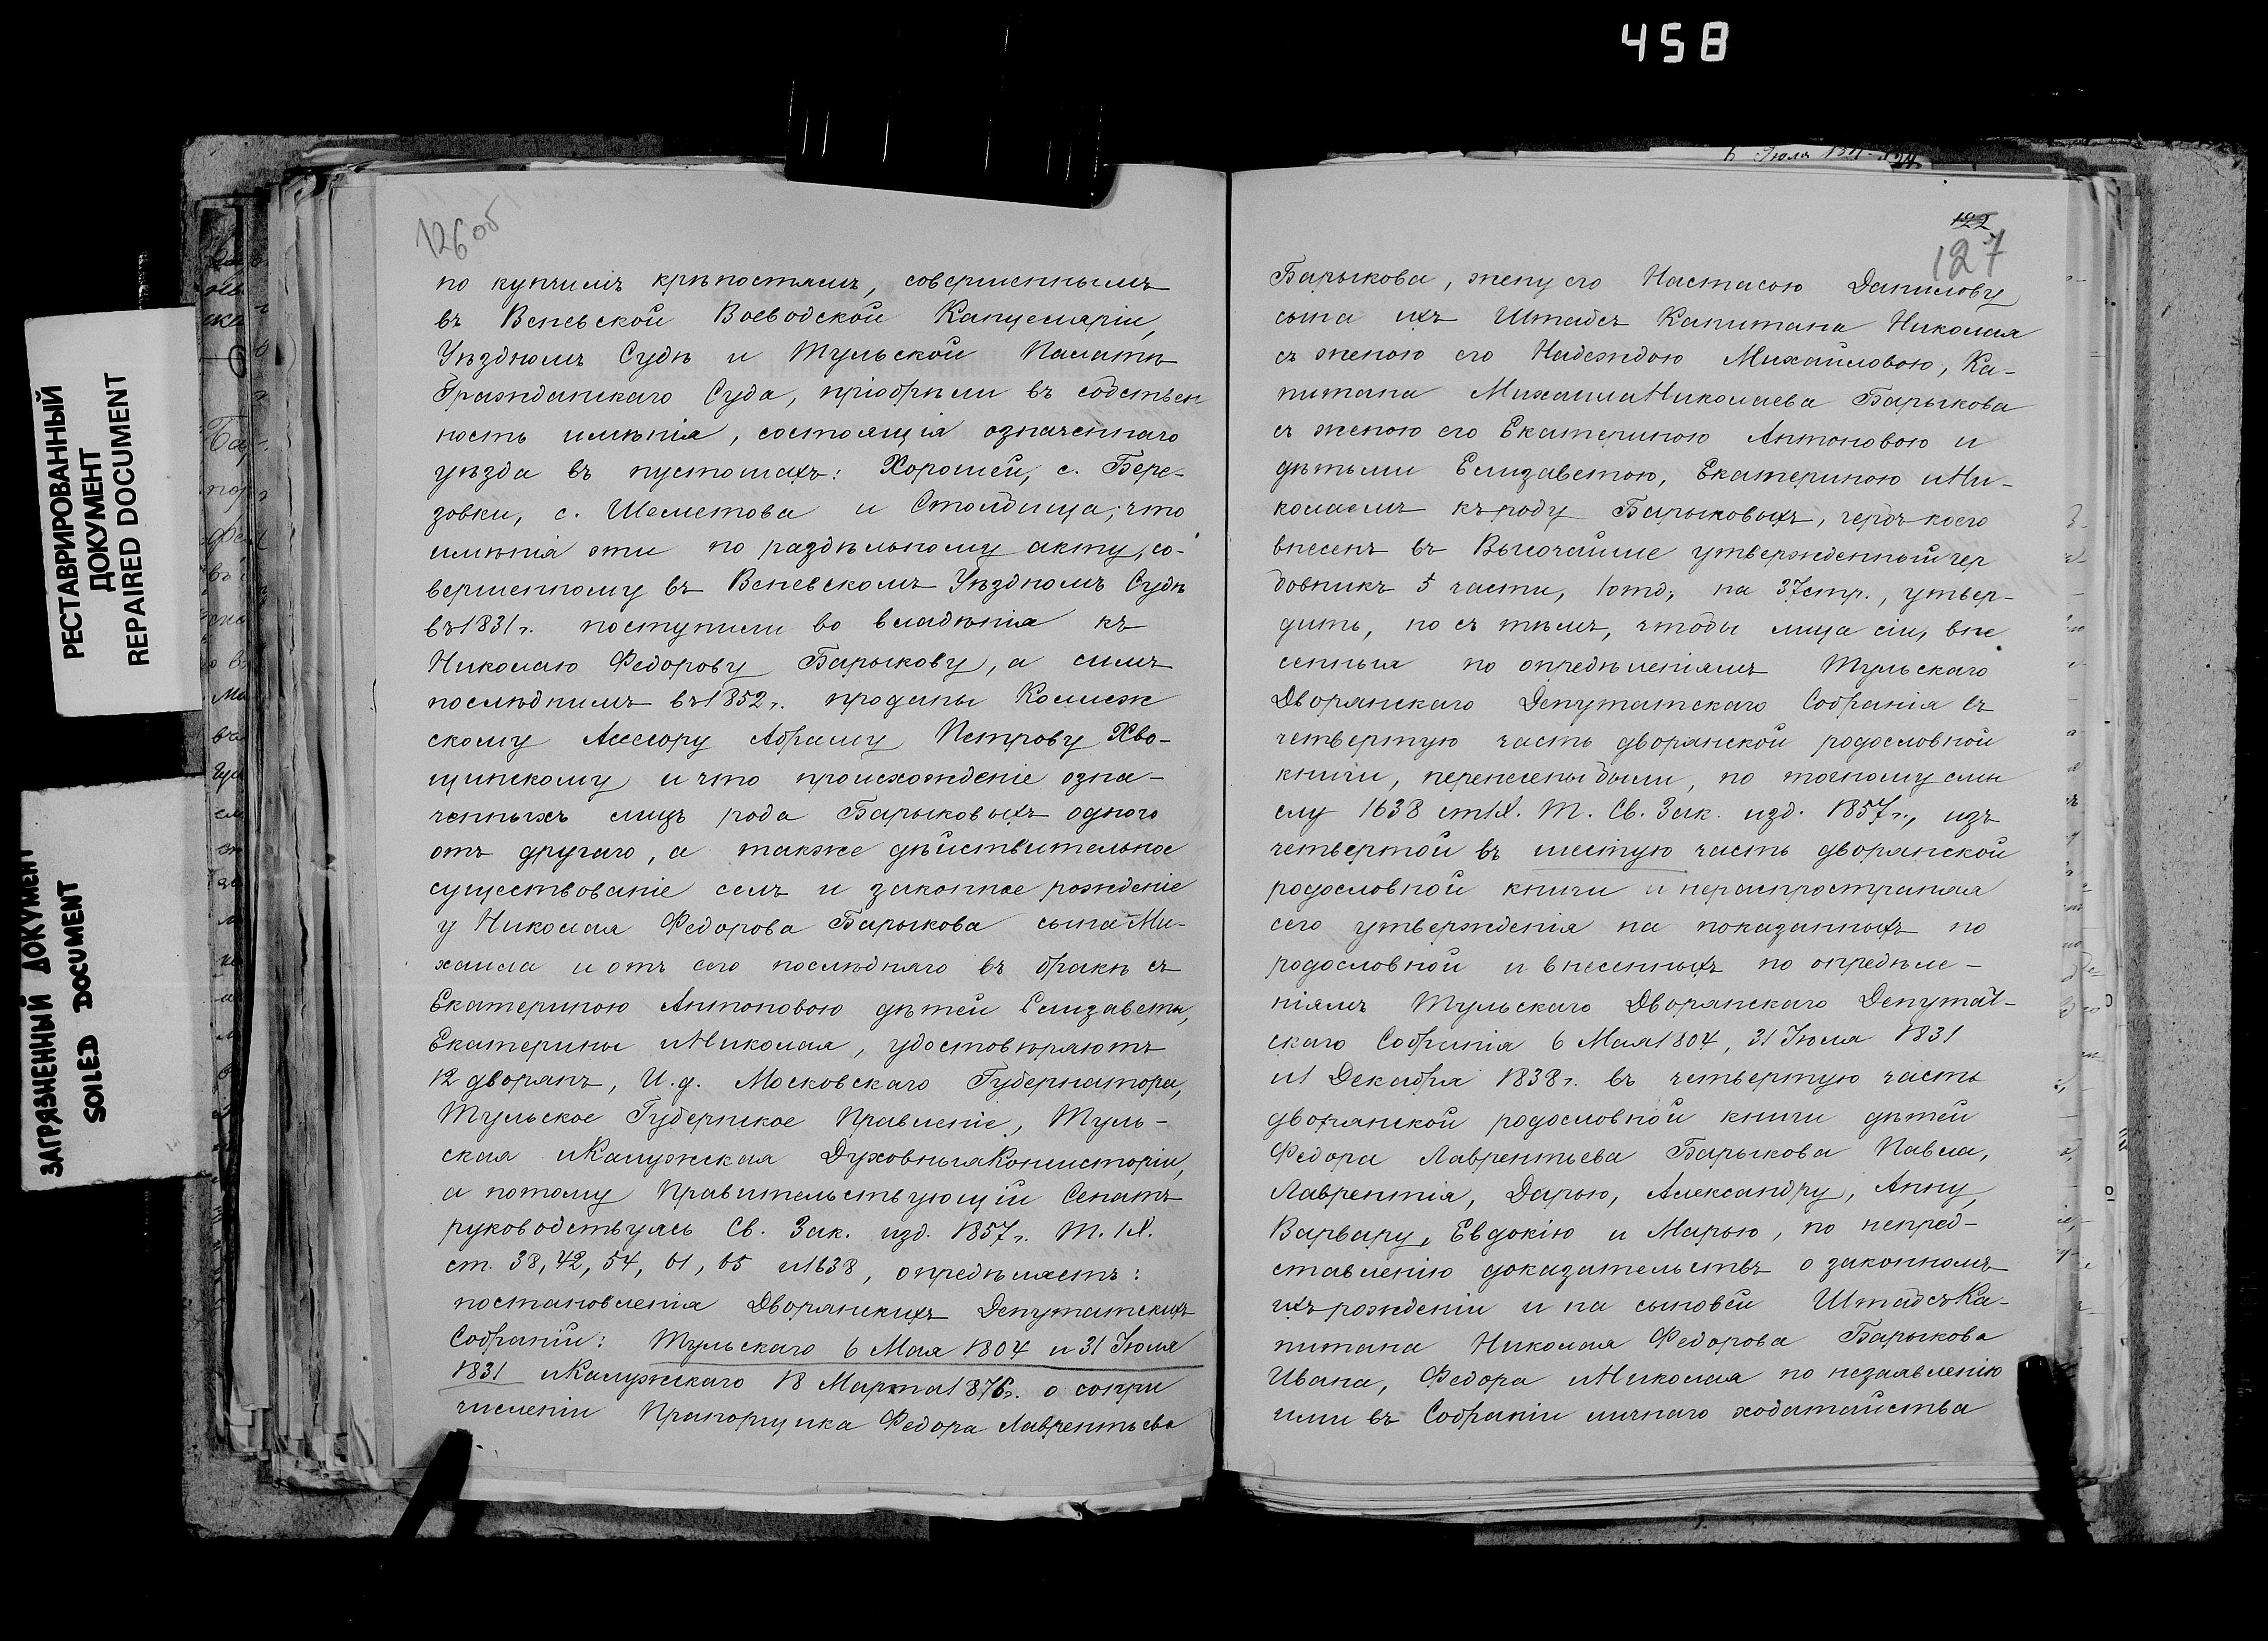 458
РЕСТАВРИРОВАННЫЙ
ДОКУМЕНТ
REPAIRED DOCUMENT
ЗАГРЯЗНЕННЫЙ ДОКУМЕНТ
SOILED DOCUMENT
126 об
по купчимъ крѣпостямъ, совершеннымъ
въ Веневской Воеводской Канцеляріи,
Уѣздномъ Судѣ и Тульской Палатѣ
Гражданскаго Суда, пріобрѣли въ собствен
ность имѣнія, состоящія означеннаго
уѣзда въ пустошахъ: Хорошей, с. Бере-
зовки, с. Шеметова и Столбища; что
имѣнія эти по раздѣльному акту, со-
вершенному въ Веневскомъ Уѣздномъ Судѣ
въ 1831 г. поступили во владѣнія къ
Николаю Федорову Барыкову, а симъ
послѣднимъ въ 1852 г. проданы Коллеж
скому Асессору Абраму Петрову Хво-
щинскому и что происхожденіе озна-
ченныхъ лицъ рода Барыковыхъ одного
отъ другаго, а также дѣйствительное
существованіе семъ и законное рожденіе
у Николая Федорова Барыкова сына Ми-
хаила и отъ сего послѣдняго въ бракѣ съ
Екатериною Антоновою дѣтей Елизаветы,
Екатерины и Николая, удостовѣряютъ
12 дворянъ, И. д. Московскаго Губернатора,
Тульское Губернское Правленіе, Туль-
ская и Калужская Духовныя Консисторіи,
а потому Правительствующій Сенатъ
руководствуясь Св. Зак. изд. 1857 г. т. IX.
ст. 38, 42, 54, 61, 65 и 1638, опредѣляетъ:
постановленія Дворянскихъ Депутатскихъ
Собраній: Тульскаго 6 Мая 1804 и 31 Іюля
1831 и Калужскаго 18 Марта 1876 г. о сопри
численіи Прапорщика Федора Лаврентьева
122
127
Барыкова, жену его Настасью Данилову
сына ихъ Штабсъ Капитана Николая
съ женою его Надеждою Михайловою, Ка-
питана Михаила Николаева Барыкова
съ женою его Екатериною Антоновою и
дѣтьми Елизаветою, Екатериною и Ни-
колаемъ къ роду Барыковыхъ, гербъ коего
внесенъ въ Высочайше утвержденный гер
бовникъ 5 части, 1 отд., на 37 стр., утвер-
дить, но съ тѣмъ, чтобы лица сіи, вне
сенныя по опредѣленіямъ Тульскаго
Дворянскаго Депутатскаго Собранія въ
четвертую часть дворянской родословной
книги, перенесены были, по точному смы
слу 1638 ст. IX. т. Св. Зак. изд. 1857 г., изъ
четвертой въ шестую часть дворянской
родословной книги и нераспространяя
сего утвержденія на показанныхъ по
родословной и внесенныхъ по опредѣле-
ніямъ Тульскаго Дворянскаго Депутат-
скаго Собранія 6 Мая 1804, 31 Іюля 1831
и 1 Декабря 1838 г. въ четвертую часть
дворянской родословной книги дѣтей
Федора Лаврентьева Барыкова Павла,
Лаврентія, Дарью, Александру, Анну,
Варвару, Евдокію и Марью, по непред-
ставленію доказательствъ о законномъ
ихъ рожденіи и на сыновей Штабсъ Ка-
питана Николая Федорова Барыкова
Ивана, Федора и Николая по незаявленію
ими въ Собраніи личнаго ходатайства